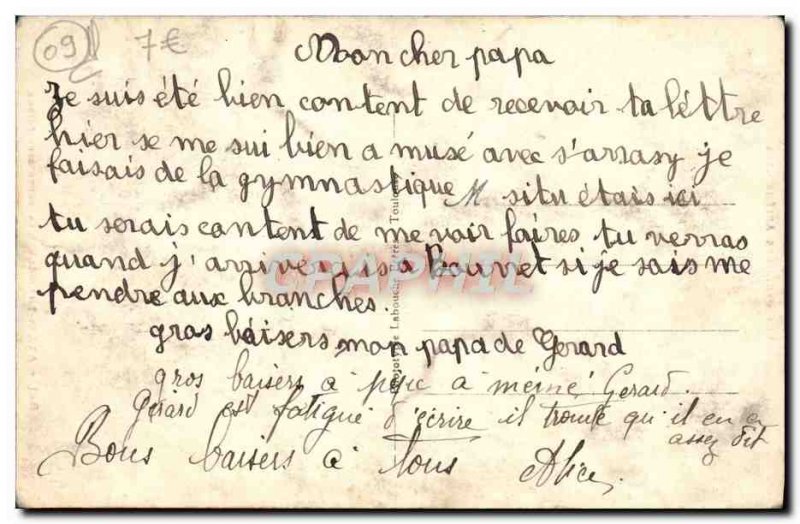 09 7€
Mon cher papa
Je suis été bien content de recevoir ta léttre
hier se me sui bien a musé avec s'arrasy je
faisais de la gymnastique M situ étais ici
tu serais content de me voir faires tu verras
quand j'arriverais a Bourret si je sais me
pendre aux branches.
gros baisers mon papa de Gerard
gros baisers a pépé a mémé Gerard.
Gérard est fatigué d'écrire il trouve qu'il en a
assez dit
Bons baisers a tous Alice
CPAPHIL
Labouche Frères Toulouse